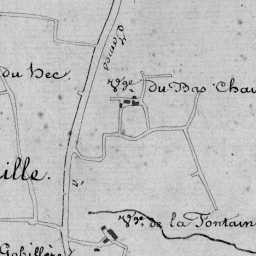 du Bec
V.ge du Bas Chau
ille.
V.ge de la Fontain
Gobillère